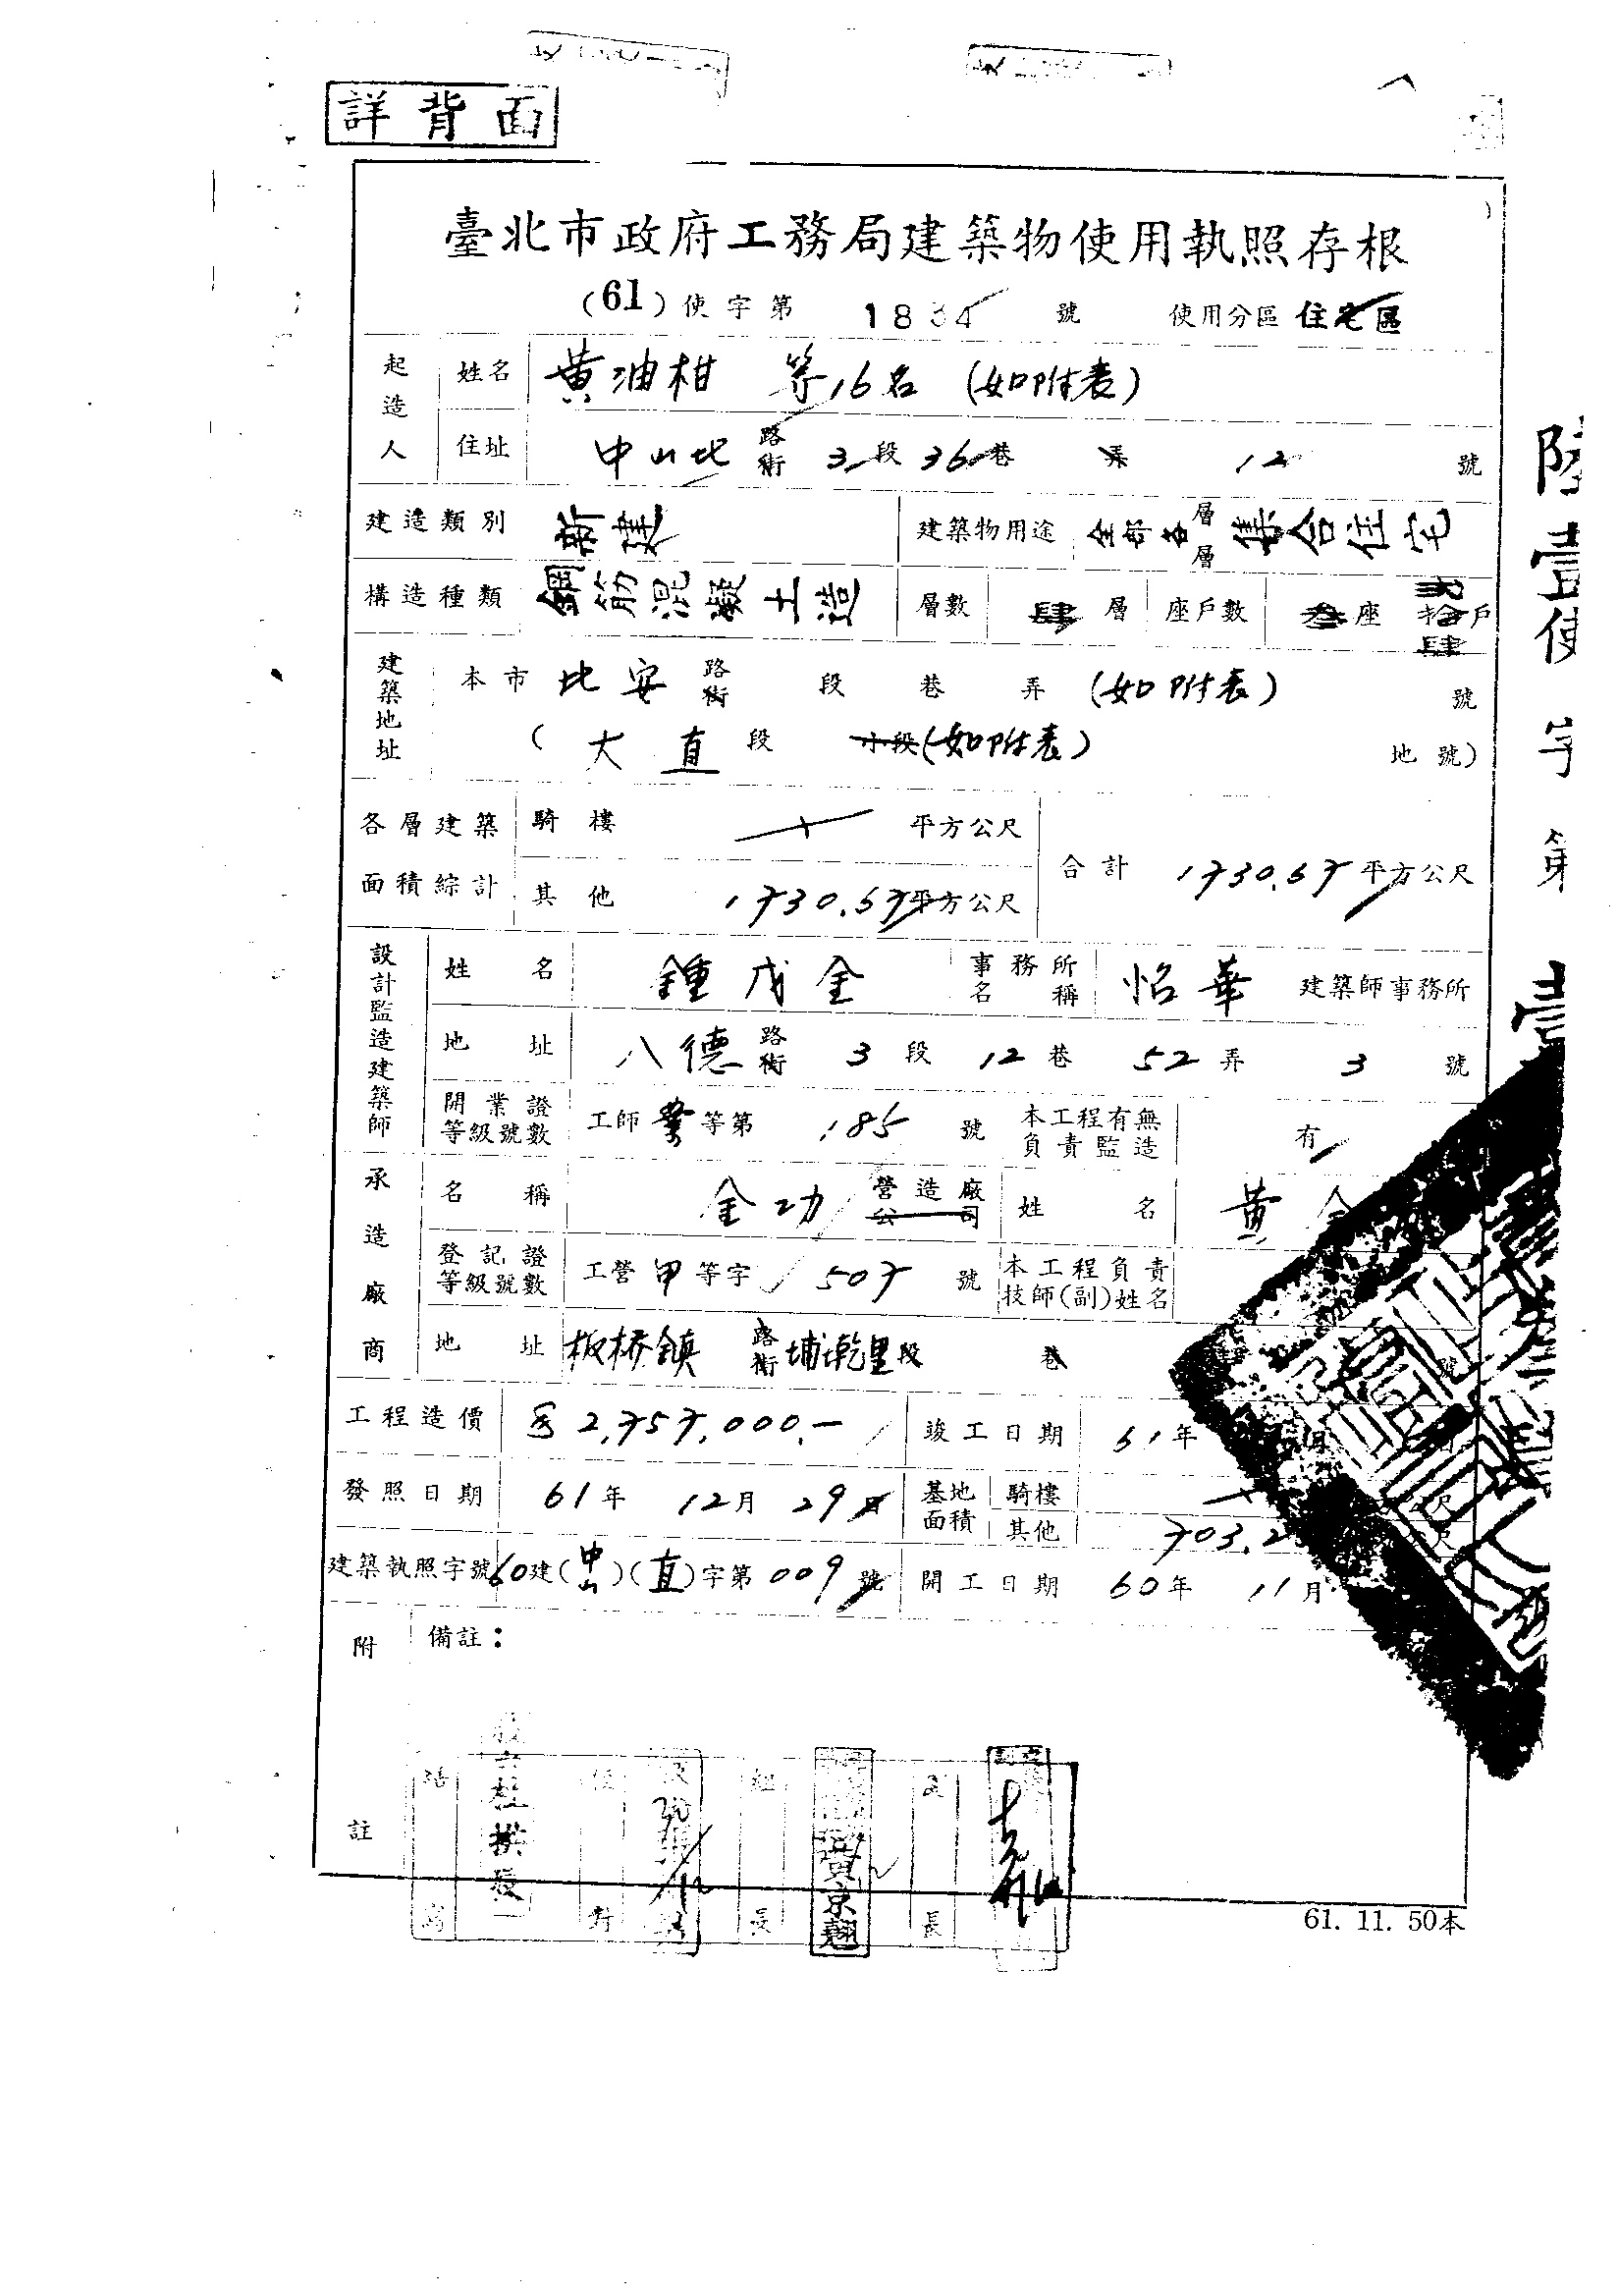 詳背面
臺北市政府工務局建築物使用執照存根
(61)使字第 1834 號 使用分區 住宅區
起造人 姓名 黃油柑 等16名 (如附表)
住址 中山北 路街 3段 36巷 弄 12 號
建造類別 新建 建築物用途 全部各層層 集合住宅
構造種類 鋼筋混凝土造 層數 肆 層 座戶數 叁座 拾肆戶
建築地址 本市 北安 路街 段 巷 弄 (如附表) 號
(大直段 小段(如附表) 地號)
各層建築面積綜計 騎樓 平方公尺
其他 1730.67平方公尺 合計 1730.67平方公尺
設計監造建築師 姓名 鍾戊全 事務所名稱 怡華 建築師事務所
地址 八德 路街 3段 12巷 52弄 3號
開業證等級號數 工師業等第 185 號 本工程有無負責監造 有
承造廠商 名稱 全功 營造廠公司 姓名 黃
登記證等級號數 工營甲等字 507 號 本工程負責技師(副)姓名
地址 板桥鎮 路街 埔墘里段 巷 號
工程造價 2,757,000.- 竣工日期 61年 月
發照日期 61年 12月 29日 基地面積 騎樓
其他 703.2
建築執照字號 60建(中山)(直)字第009號 開工日期 60年 11月
附註 備註：
黃京翹
長
61. 11. 50本
陸壹使字第壹